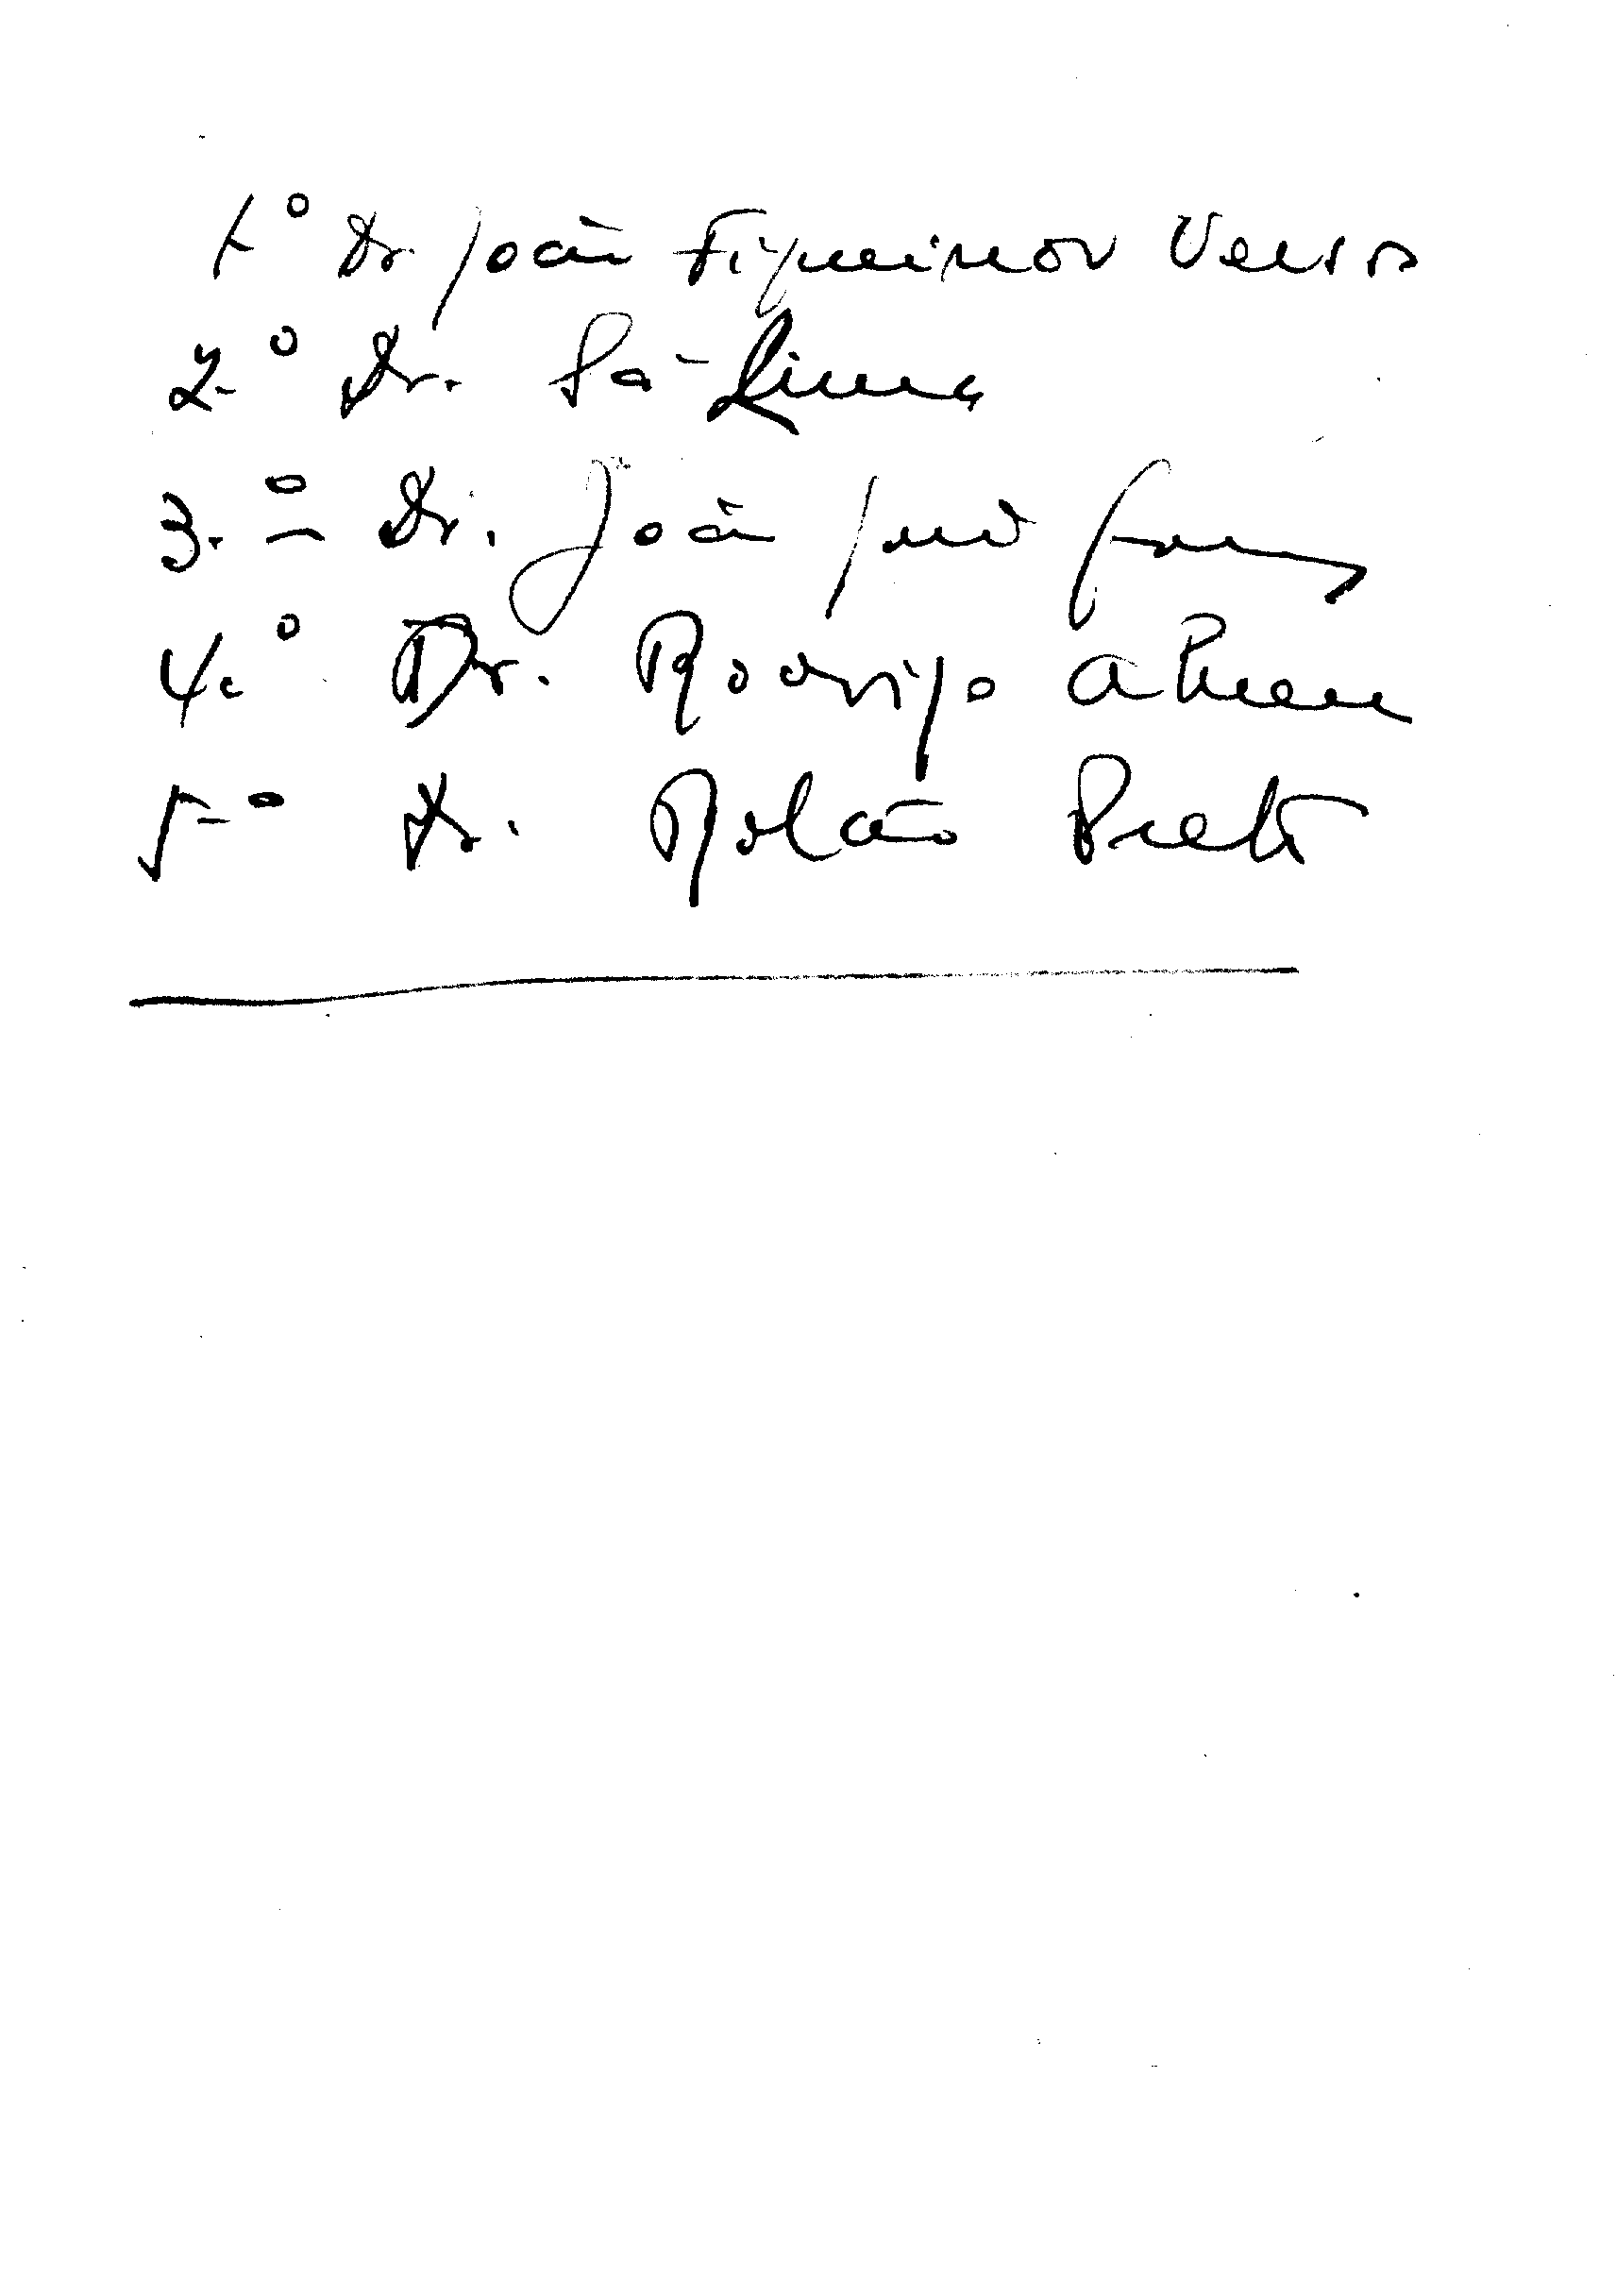 1º Dr. João Figueiredo Veloso
2.º Dr. Sá Lima
3.º Dr. João José Gomes
4.º Dr. Rodrigo Abreu
5º Dr. Rolão Preto